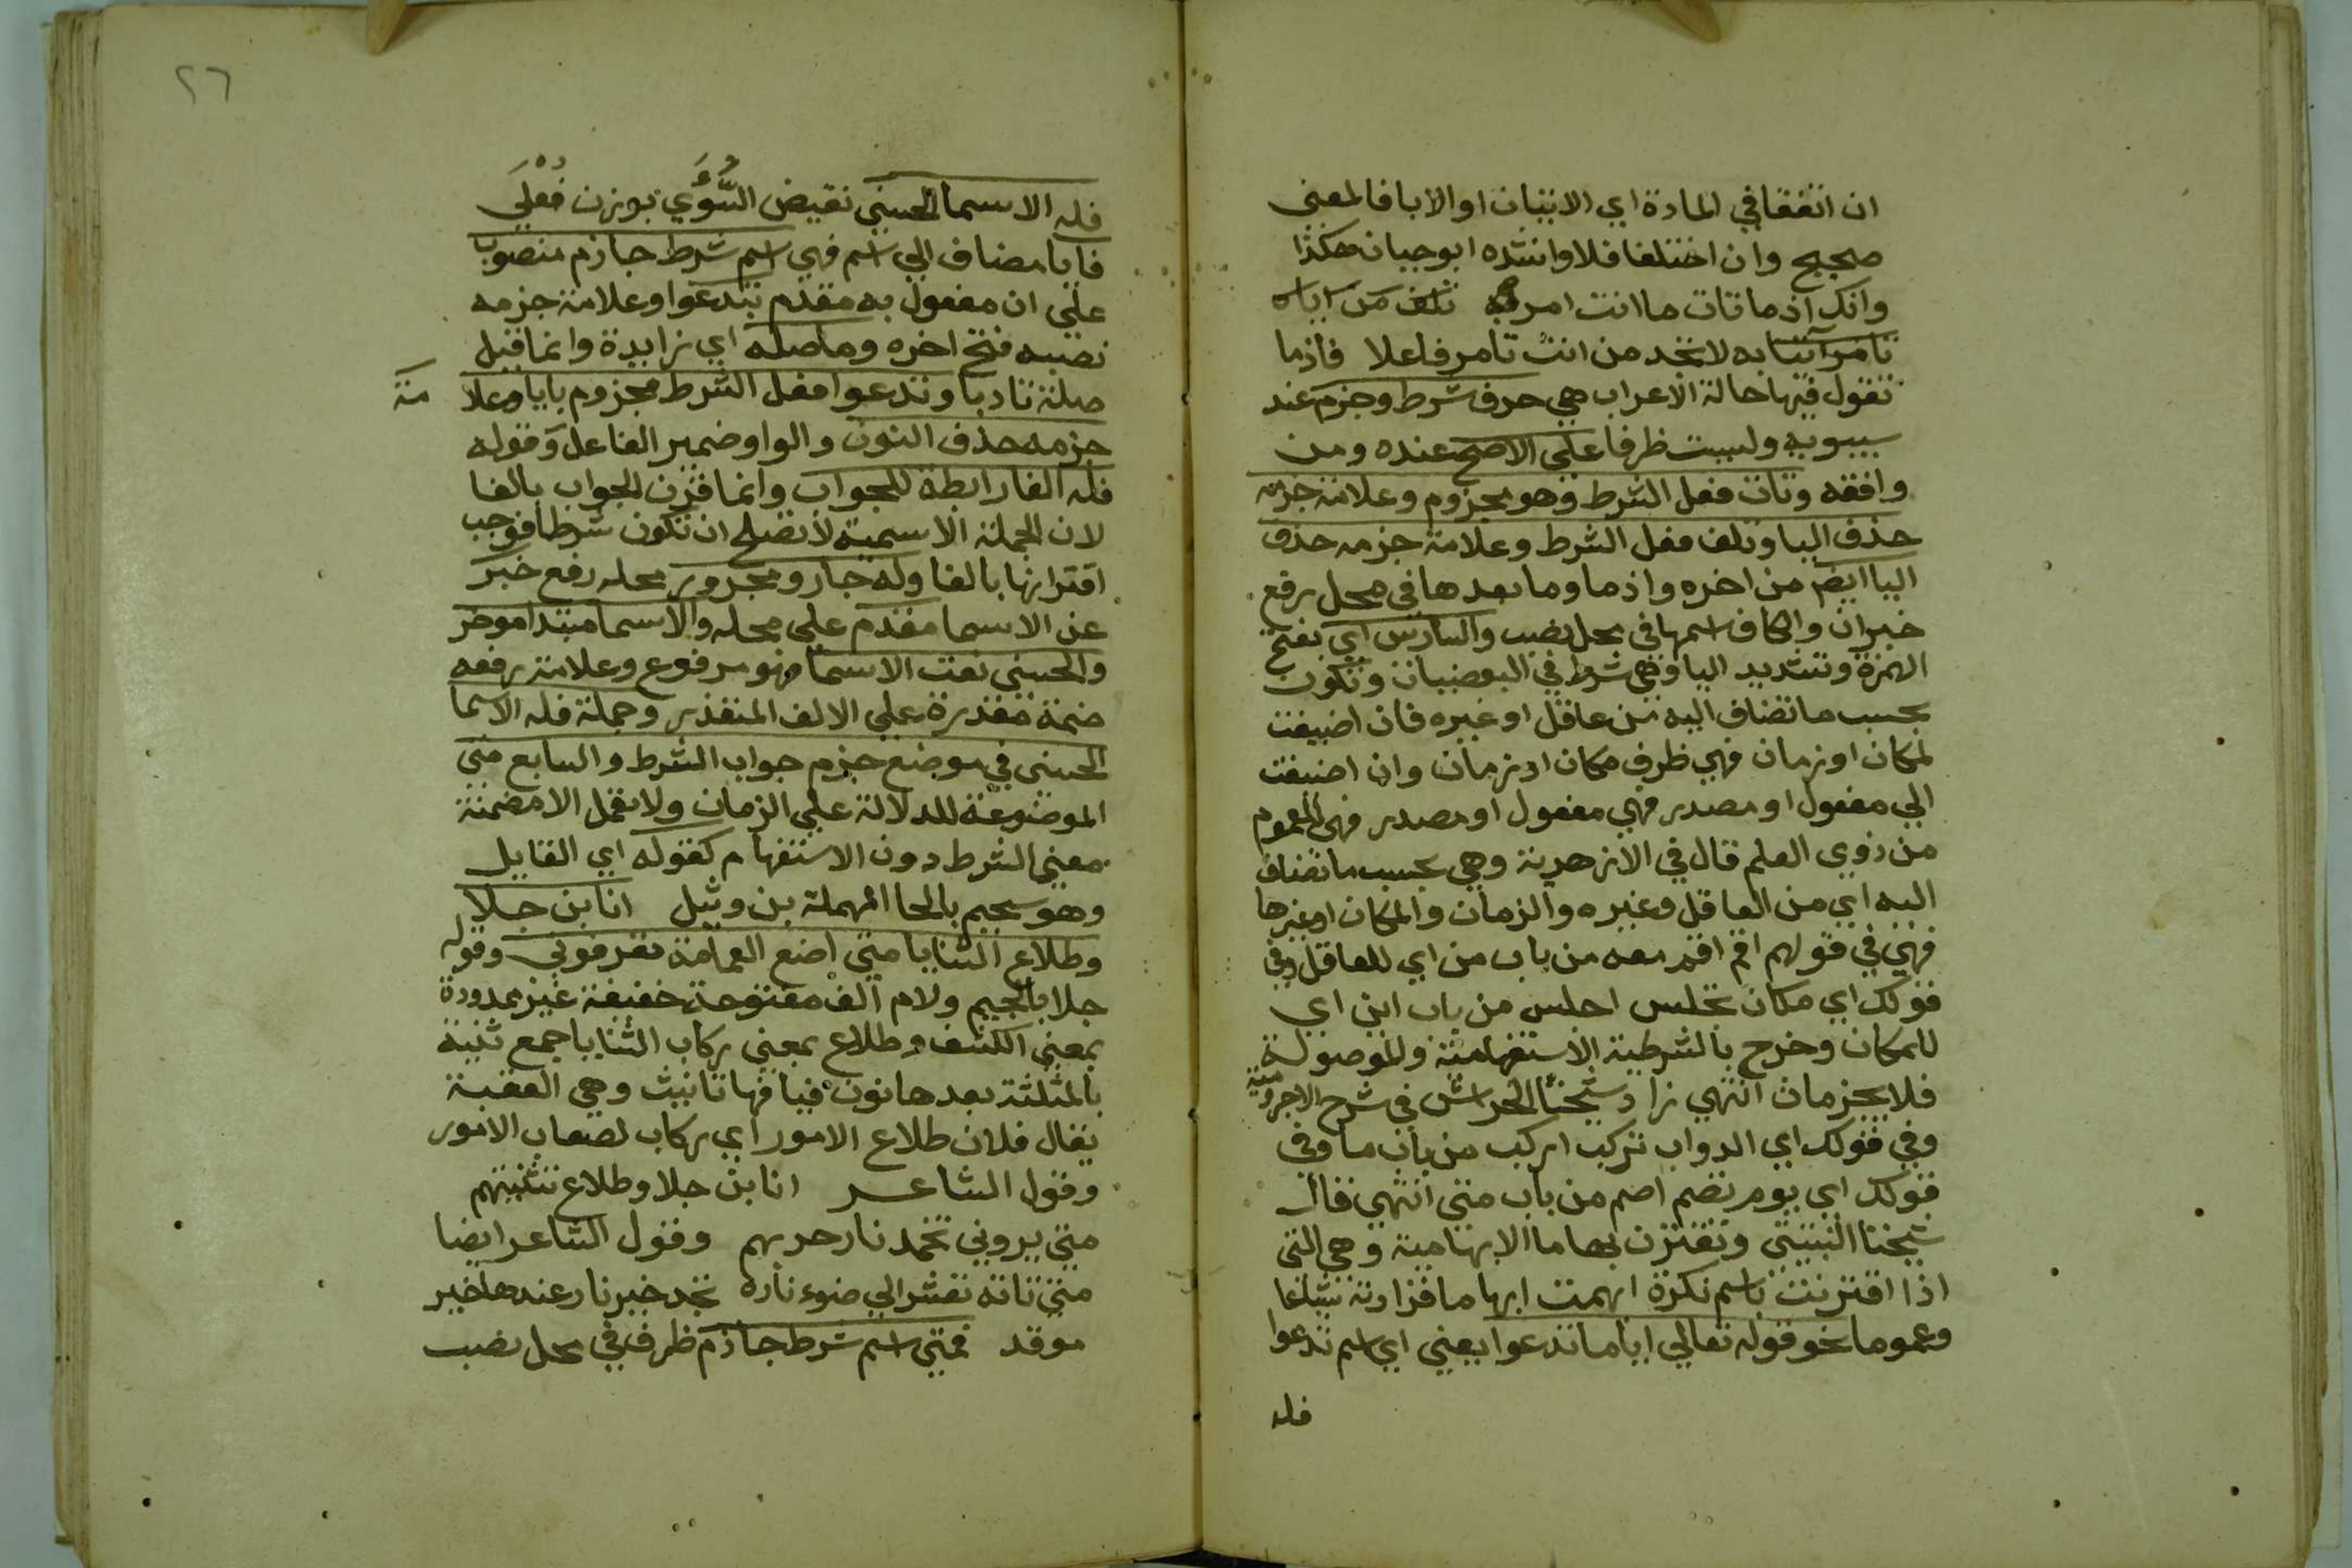 ان اتفقا في المادة اي الاتيان او الابا فالمعنى
صحيح وان اختلفا فلا وانشده ابو حيان هكذا
وانك اذ ما تات ما انت امر به تلف من اياه
تامر آتيا به لا تجد من انت تامر فاعلا فاذما
تقول فيها حالة الاعراب هي حرف شرط وجزم عند
سيبويه وليست ظرفا علي الاصح عنده ومن
وافقه وتات فعل الشرط وهو مجزوم وعلامة جزمه
حذف اليا وتلف فعل الشرط وعلامة جزمه حذف
اليا ايضم من اخره واذما وما بعدها في محل رفع
خبران والكاف اسمها في محل نصب والسادس اي بفتح
الهمزة وتشديد اليا وهي شرط في البعضيات وتكون
بحسب ما تضاف اليه من عاقل او غيره فان اضيفت
لمكان او زمان فهي ظرف مكان او زمان وان اضيفت
الي مفعول او مصدر فهي مفعول او مصدر فهي للعموم
من ذوي العلم قال في الازهرية وهي بحسب ما تضاف
اليه اي من العاقل وغيره والزمان والمكان او غيرها
فهي في قولهم اقم اقم معه من باب من اي للعاقل وفي
قولك اي مكان تجلس اجلس من باب اين اي
للمكان وخرج بالشرطية الاستفهامية والموصولة
فلا يجزمان انتهي زاد شيخنا الخراشى في شرح الاجرومية
وفي قولك اي الدواب تركب اركب من باب ما وفي
قولك اي يوم تصم اصم من باب متى انتهي قال
شيخنا الشبيني وتقترن بها ما الابهامية وهي التي
اذا اقترنت باسم نكرة ابهمت ابهاما فزادته شياعا
وعموما نحو قوله تعالي اياما تدعوا يعني اي اسم تدعوا
فله
٢٦
فله الاسما الحسني نقيض السُّوَءَي بوزن فُعْلَي
فايا مضاف الي اسم فهي اسم شرط جازم منصوب
علي ان مفعول به مقدم بتدعوا وعلامة جزمه
نصبه فتح اخره وما صله اي زايدة وانما قيل
صلة تادبا وتدعوا فعل الشرط مجزوم بايا وعلا مة
جزمه حذف النون والواو ضمير الفاعل وقوله
فله الفا رابطة للجواب وانما قرن الجواب بالفا
لان الجملة الاسمية لا تصلح ان تكون شرطا فوجب
اقترانها بالفا وله جار ومجرور محله رفع خبر
عن الاسما مقدم علي محله والاسما مبتدا موخر
والحسنى نعت الاسما فهو مرفوع وعلامة رفعه
ضمة مقدرة علي الالف المتقذر وجملة فله الاسما
الحسنى في موضع جزم جواب الشرط والسابع متي
الموضوعة للدلالة علي الزمان ولا تعمل الا مضمنة
معنى الشرط دون الاستفهام كقوله اي القايل
وهو سحيم بالحا المهملة بن وثيل انا بن جلا
وطلاع الثنايا متى اضع العمامة تعرفوني وقوله
جلا بالجيم ولام الف مفتوحة خفيفة غير ممدودة
بمعني الكشف وطلاع بمعني ركاب الثنايا جمع ثنية
بالمثلثة بعدها نون فيا فها تانيث وهي العقبة
يقال فلان طلاع الامور اي ركاب لصعاب الامور
وقول الشاعر انا بن جلا وطلاع تثنيتهم
متي يروني تخمد نار حربهم وقول الشاعر ايضا
متي تاته تعشر الي ضوء ناره تجد خير نار عندها خير
موقد فمتي اسم شرط جازم ظرف في محل نصب